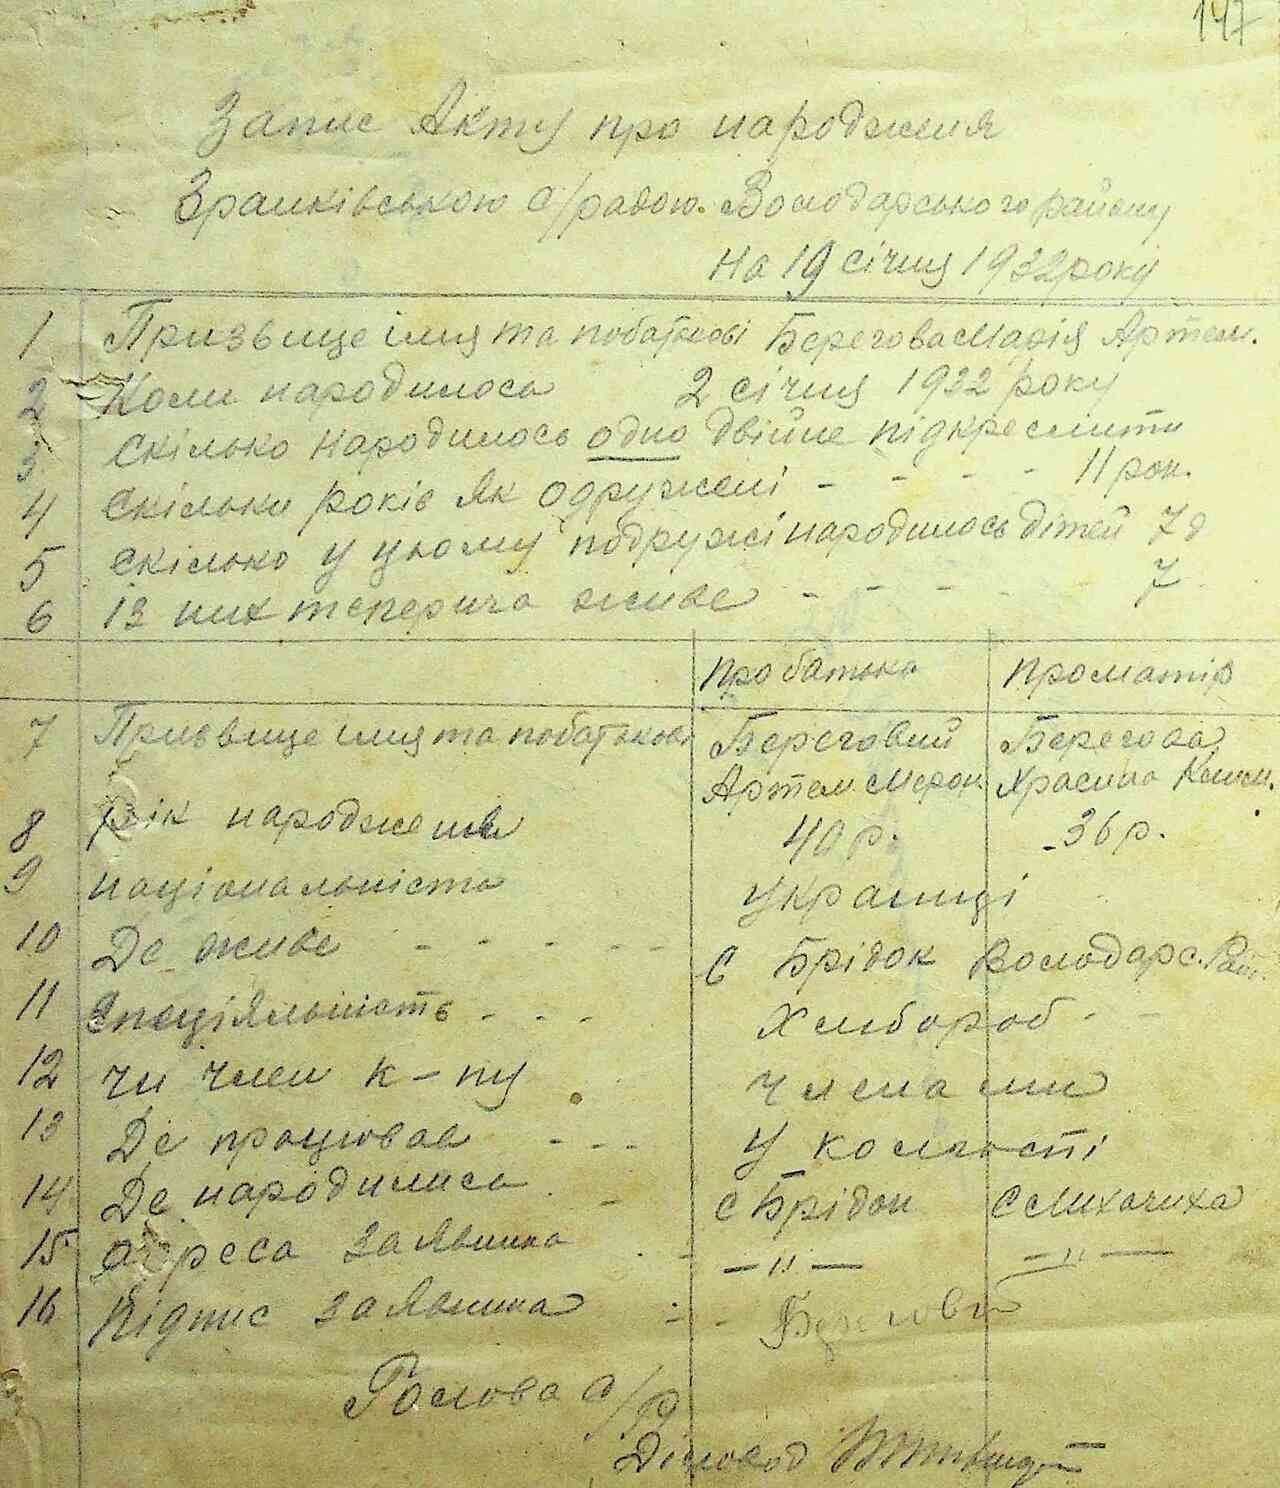 147
Запис Акту про народженя
Зраиківською с/радою. Володарського району
на 19 січня 1932 року
1 Призвище імя та побатькові Берегова Марія Артем.
2 Коли народилось 2 січня 1932 року
3 Скілько народилось одно двійне підкреслити
4 Скільки років як одружені - - - - 11 рок.
5 Скілько у цьому подружі народилось дітей 7 д
6 Із них теперича живе - - - - 7
Про батька Про матір
7 Призвище імя та побатькові Береговий Берегова
Артем Мерон. Храсина Клим.
8 рік народженя 40 р. 36 р.
9 національність Україн​ці
10 Де живе - - - - - с Брідок Володарс. Рай.
11 Спеціяльність - - - Хлібороб - -
12 чи член к-пу члена ми
13 Де працював - - - у колгоспі
14 Де народились - с Брідок с Лихачиха
15 адреса заявника - —"— —"—
16 Підпис заявника - - Береговий
Голова с/р
Діловод